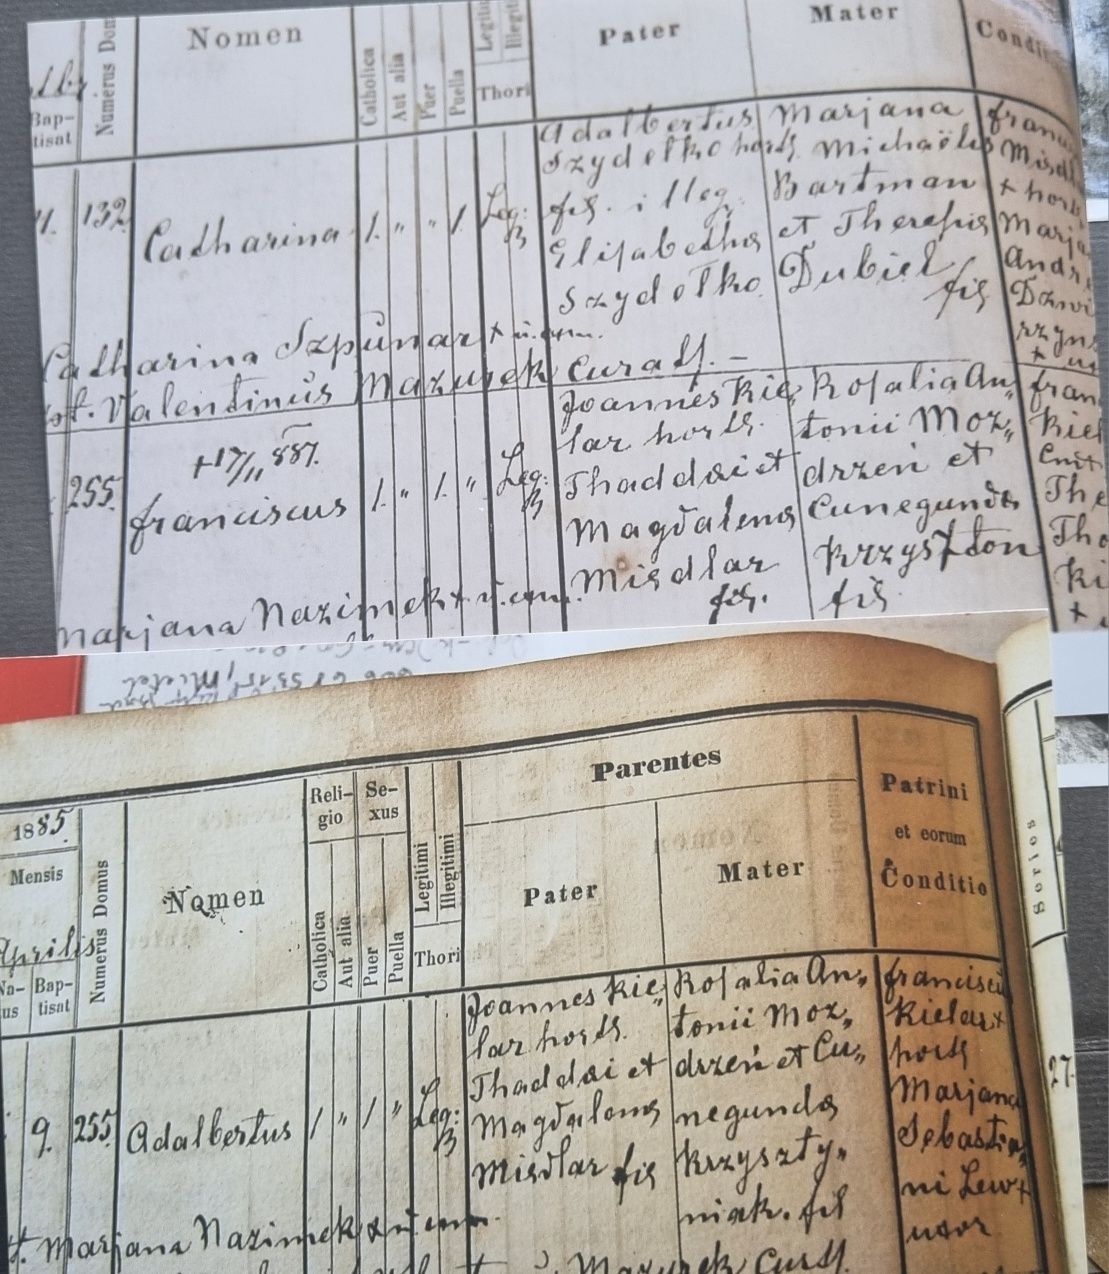 Bap-
tisat
Numerus Dom
Nomen
Catholica
Aut alia
Puer
Puella
Legiti
Illegit
Thori
Pater
Mater
Condit
132
Catharina
1. " " 1.
Leg:
Adalbertus
Szydełko hort.
fil. illeg.
Elisabetha
Szydełko
Marjana
Michaëlis
Bartman
et Theresia
Dubiel
fil
Catharina Szpunar +
Valentinus Mazurek Curatt. -
255.
+17/11 887.
Franciscus
1. " 1. "
Leg:
Joannes Kie„
lar hortt.
Thaddæi et
Magdalena
Misdlar
fil.
Rosalia An„
tonii Moz„
drzeń et
Cunegunda
Krzyszton
fil
Fran
Kiel
The
Tho
Ki
Marjana Nazimek +
1885.
Mensis
Aprilis
Na-
us
Bap-
tisat
Numerus Domus
Nomen
Reli-
gio
Catholica
Aut alia
Se-
xus
Puer
Puella
Legitimi
Illegitimi
Thori
Parentes
Pater
Mater
Patrini
et eorum
Conditio
9. 255.
Adalbertus
1 " 1 "
Leg:
Joannes Kie„
lar hortt.
Thaddæi et
Magdalena
Misdlar fil
Rosalia An„
tonii Moz„
drzeń et Cu„
negunda
Krzyszty„
niak. fil
Franciscu
Kielar +
hortt
Marjana
Sebastia„
ni Lew +
uxor
27.
Marjana Nazimek +
Mazurek Curatt.